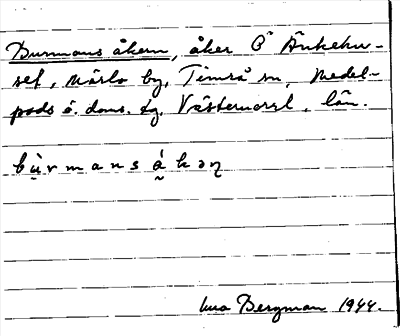 Burmans åkern, åker Ö Änkehu-
set, Märlo by, Timrå sn, Medel-
pads ö. doms. tg. Västernorrl. län.
bụ̀rmans å̀kəṇ
Bergman 1944.